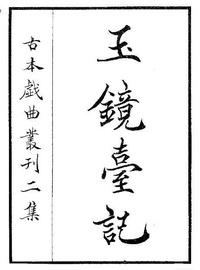 玉鏡臺記
古本戲曲叢刊二集